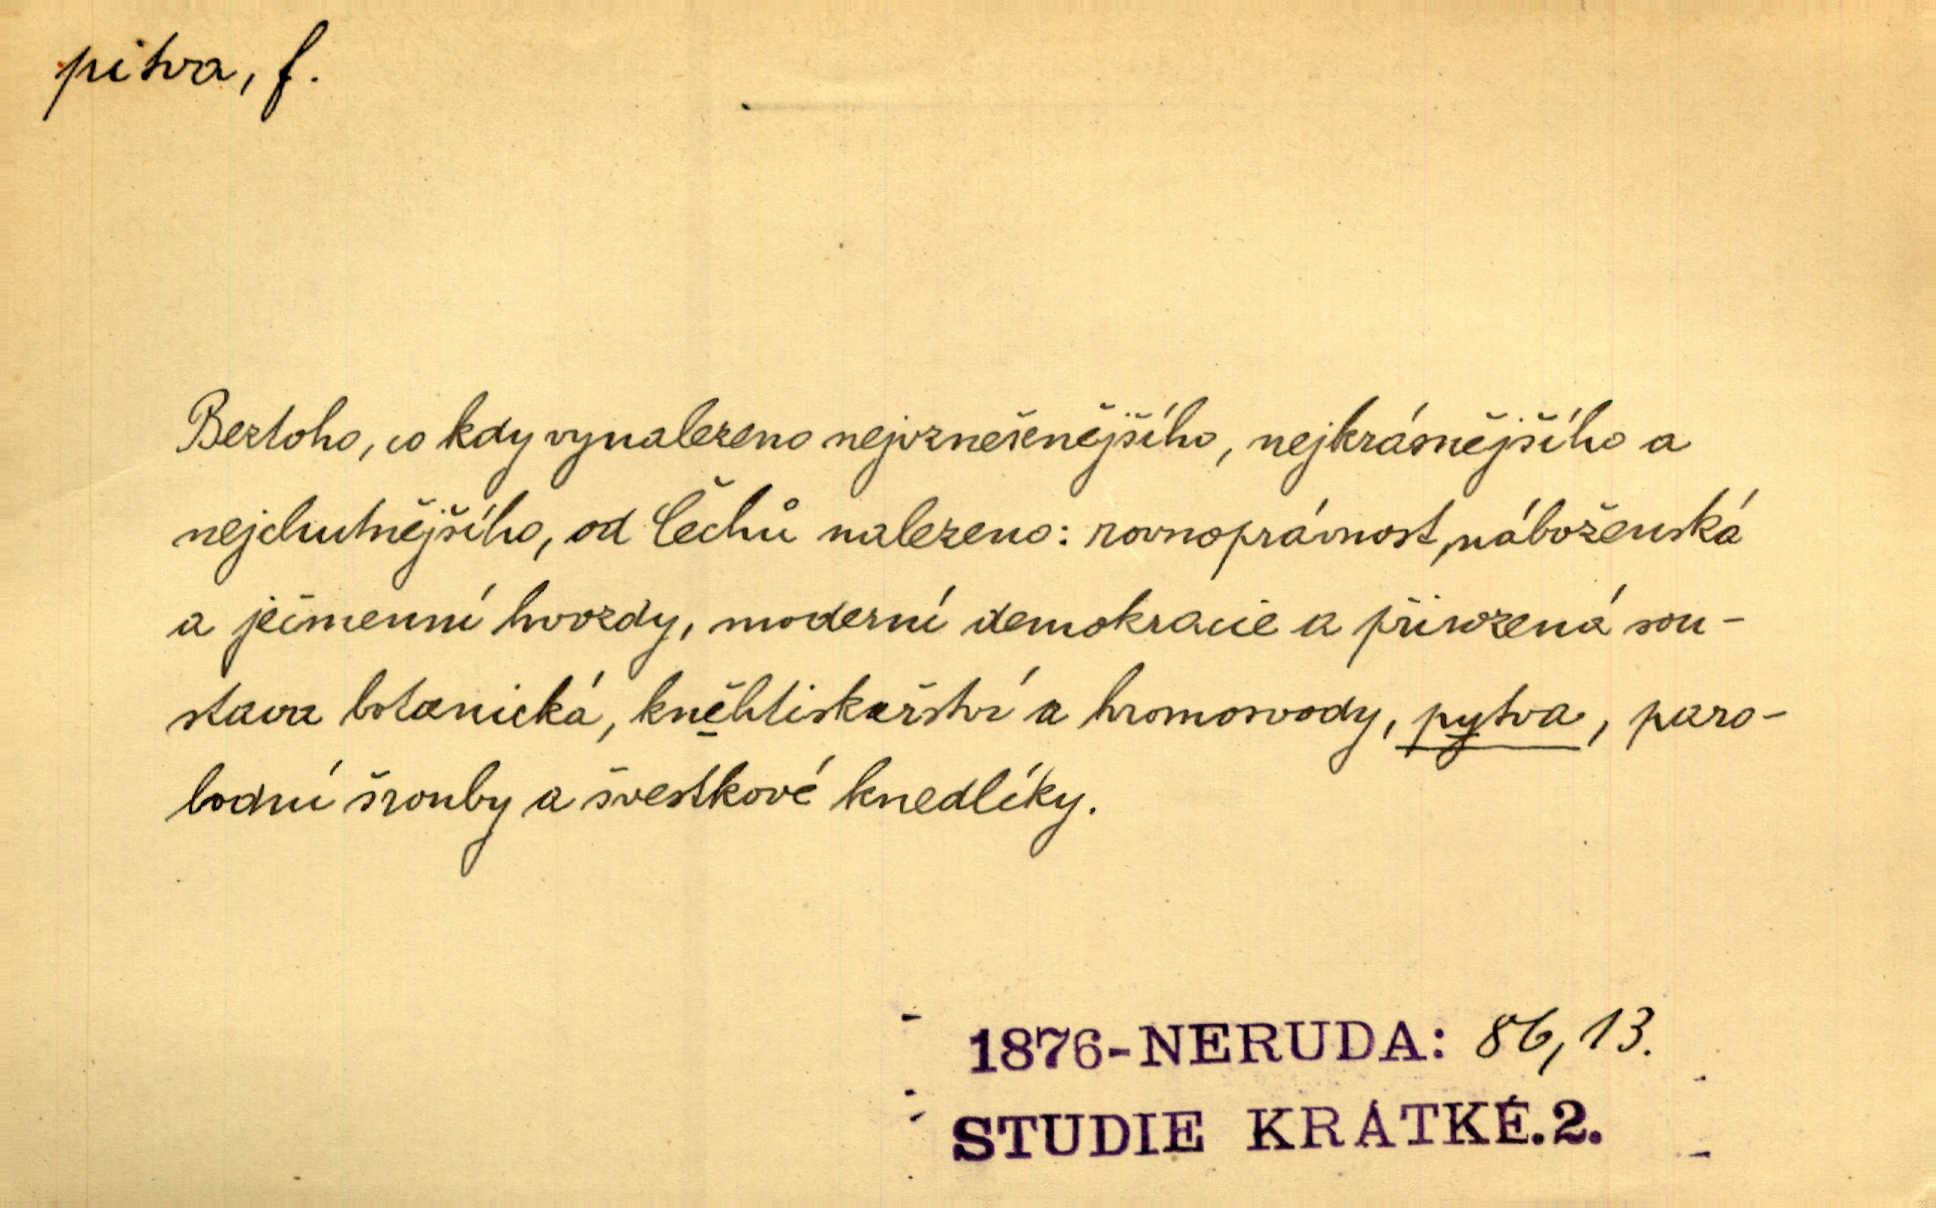 pitva, f.
Beztoho, co kdy vynalezeno nejvznešenějšího, nejkrásnějšího a
nejchutnějšího, od Čechů nalezeno: rovnoprávnost náboženská
a ječmenní hvozdy, moderní demokracie a přirozená sou-
stava botanická, kněhtiskařství a hromosvody, pytva, paro-
lodní šrouby a švestkové knedlíky.
1876-NERUDA: 86,13.
STUDIE KRÁTKÉ.2.